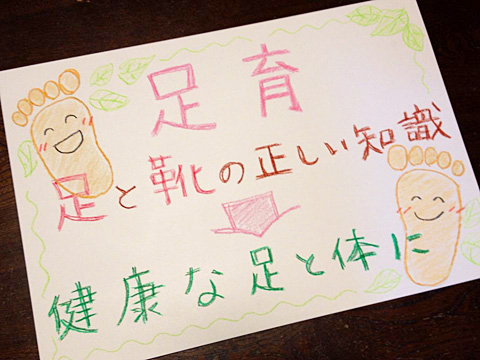 足育
足と靴の正しい知識
健康な足と体に